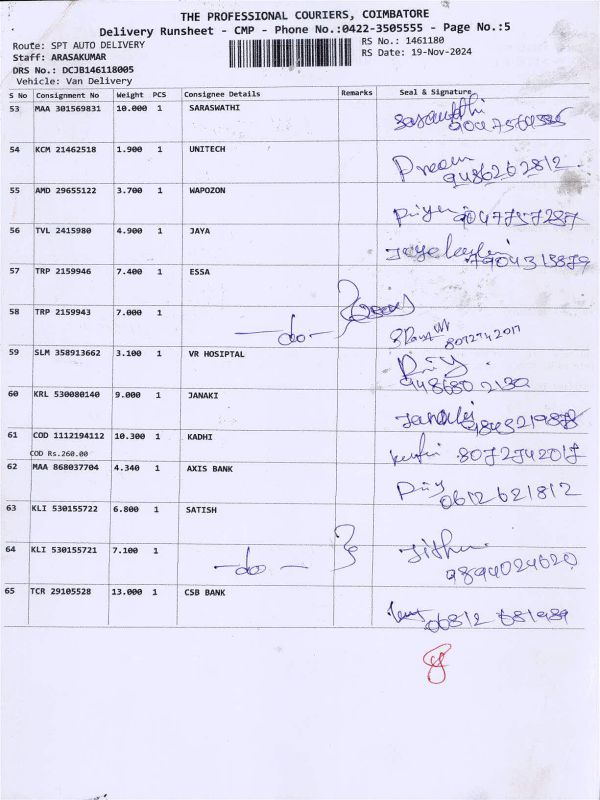 THE PROFESSIONAL COURIERS, COIMBATORE
Delivery Runsheet - CMP - Phone No.:0422-3505555 - Page No.:5
Route: SPT AUTO DELIVERY
RS No.: 1461180
Staff: ARASAKUMAR
RS Date: 19-Nov-2024
DRS No.: DCJB146118005
Vehicle: Van Delivery
S No Consignment No Weight PCS Consignee Details Remarks Seal & Signature
53 MAA 301569831 10.000 1 SARASWATHI
54 KCM 21462518 1.900 1 UNITECH
9486262812
55 AMD 29655122 3.700 1 WAPOZON
9047757287
56 TVL 2415980 4.900 1 JAYA
7904313879
57 TRP 2159946 7.400 1 ESSA
58 TRP 2159943 7.000 1
-do-
8072742017
59 SLM 358913662 3.100 1 VR HOSIPTAL
948680 2130
60 KRL 530080140 9.000 1 JANAKI
Janaki
61 COD 1112194112 10.300 1 KADHI
8072742017
COD Rs.260.00
62 MAA 868037704 4.340 1 AXIS BANK
0612621812
63 KLI 530155722 6.800 1 SATISH
64 KLI 530155721 7.100 1
-do-
9894024620
65 TCR 29105528 13.000 1 CSB BANK